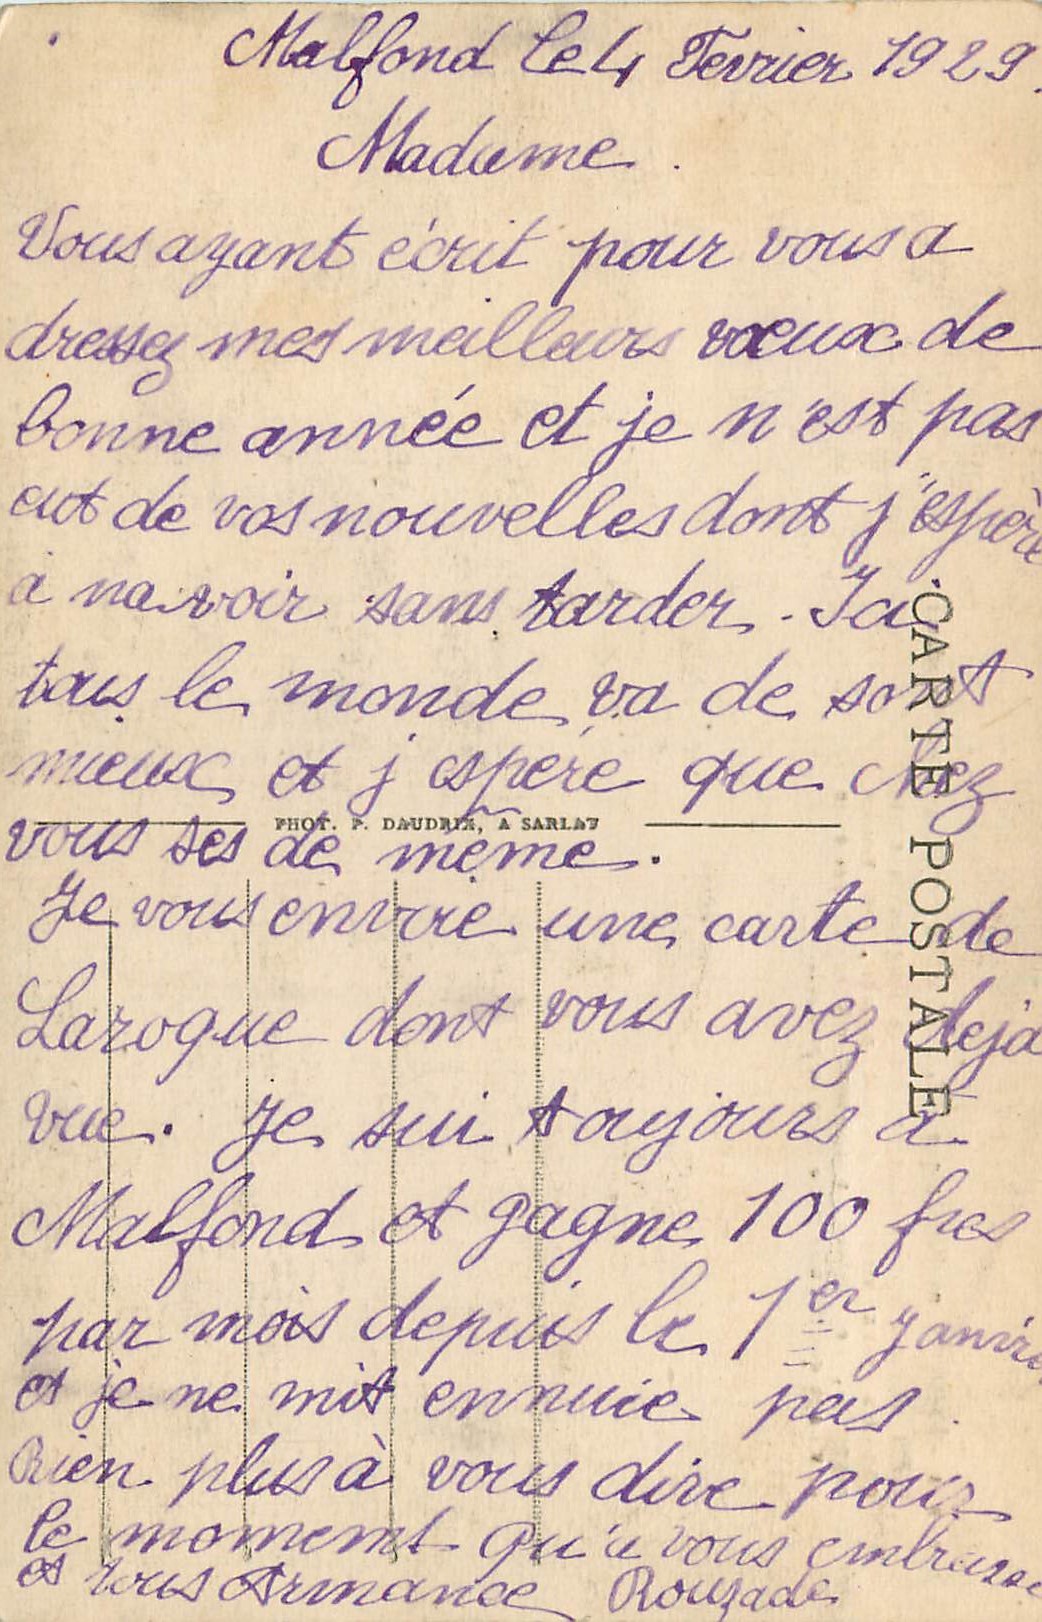 Malfond le 4 Fevrier 1929.
Madame.
Vous ayant écrit pour vous a
dressez mes meilleurs voeux de
bonne année et je n'est pas
eut de vos nouvelles dont j'espère
a navoir sans tarder. Ici
tous le monde va de sont
mieux et j espère que chez
PHOT. P. DAUDRIX, A SARLAT
vous ses de même.
Je vous envoie une carte de
Laroque dont vous avez deja
vue. Je sui toujours a
Malfond et gagne 100 frcs
par mois depuis le 1er Janvier
et je ne mit ennuie pas.
Rien plus à vous dire pour
le moment qu'a vous embrasse
et tous Armance Rouzade
CARTE POSTALE